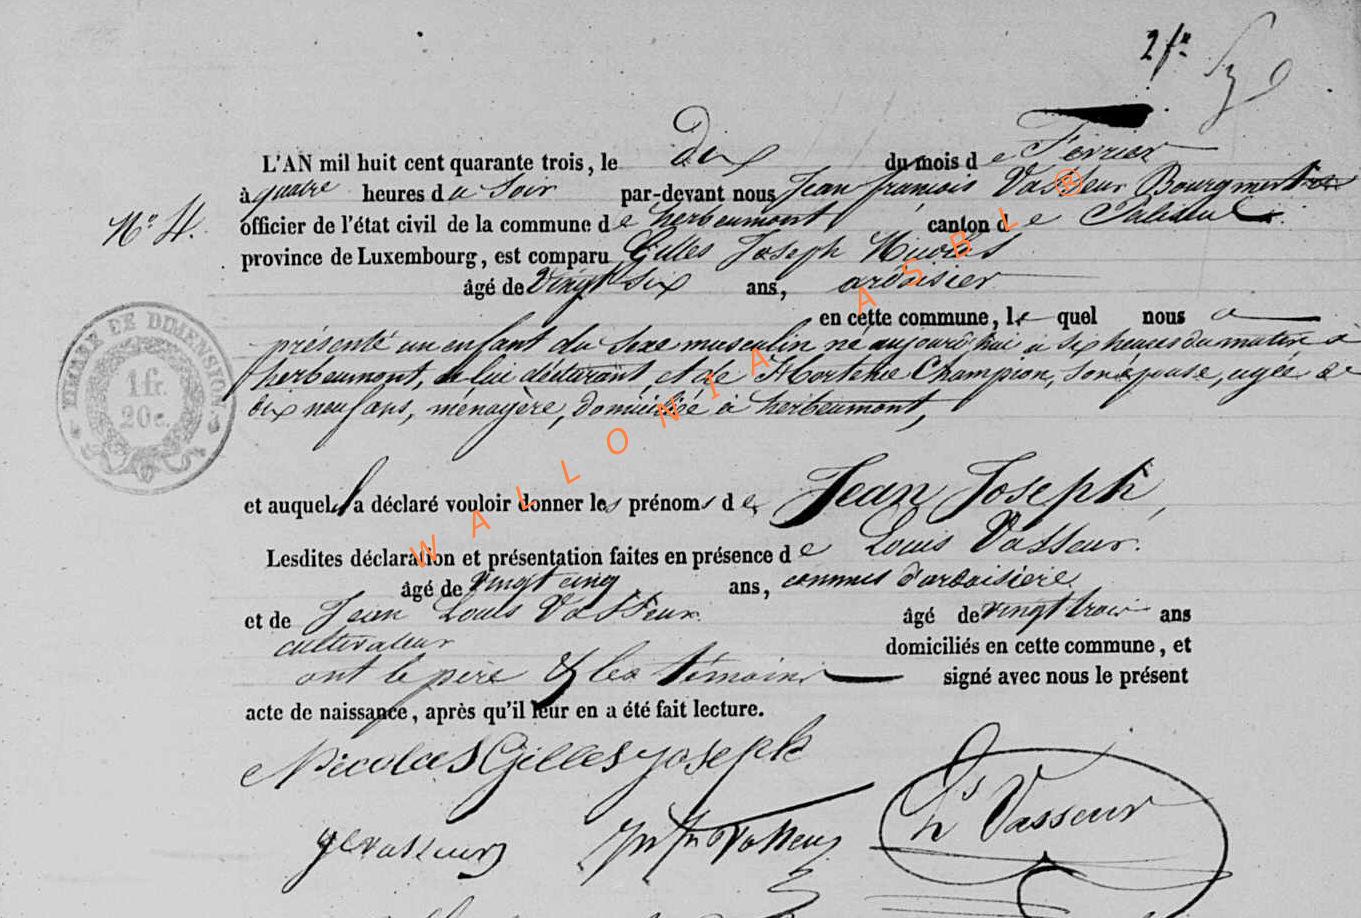 2 fr
L'AN mil huit cent quarante trois, le deux du mois de Février
à quatre heures du Soir par-devant nous Jean françois Vasseur Bourgmestre
N° 4. officier de l'état civil de la commune de herbeumont canton de Paliseul
province de Luxembourg, est comparu Gilles Joseph Nicolas
âgé de Vingt Six ans, ardoisier
en cette commune, lequel nous a
présenté un enfant du Sexe masculin né aujourd'hui à six heures du matin à
herbeumont, de lui déclarant et de Hortense Champion, son épouse, agée de
dix neuf ans, ménagère, domiciliée à herbeumont,
TIMBRE DE DIMENSION
1 fr.
20c.
et auquel il a déclaré vouloir donner les prénoms de Jean Joseph,
Lesdites déclaration et présentation faites en présence de Louis Vasseur.
âgé de vingt cinq ans, commis d'ardoisière
et de Jean Louis Vasseur âgé de vingt trois ans
cultivateur domiciliés en cette commune, et
ont le père & les témoins signé avec nous le présent
acte de naissance, après qu'il leur en a été fait lecture.
Nicolas Gilles joseph
Ls Vasseur
WALLONIA ASBL ®